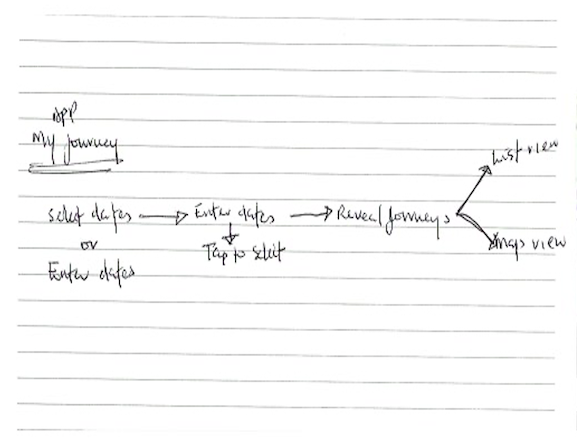 APP
My Journey
List view
Select dates → Enter dates → Reveal Journeys
or
Tap to select
Maps view
Enter dates